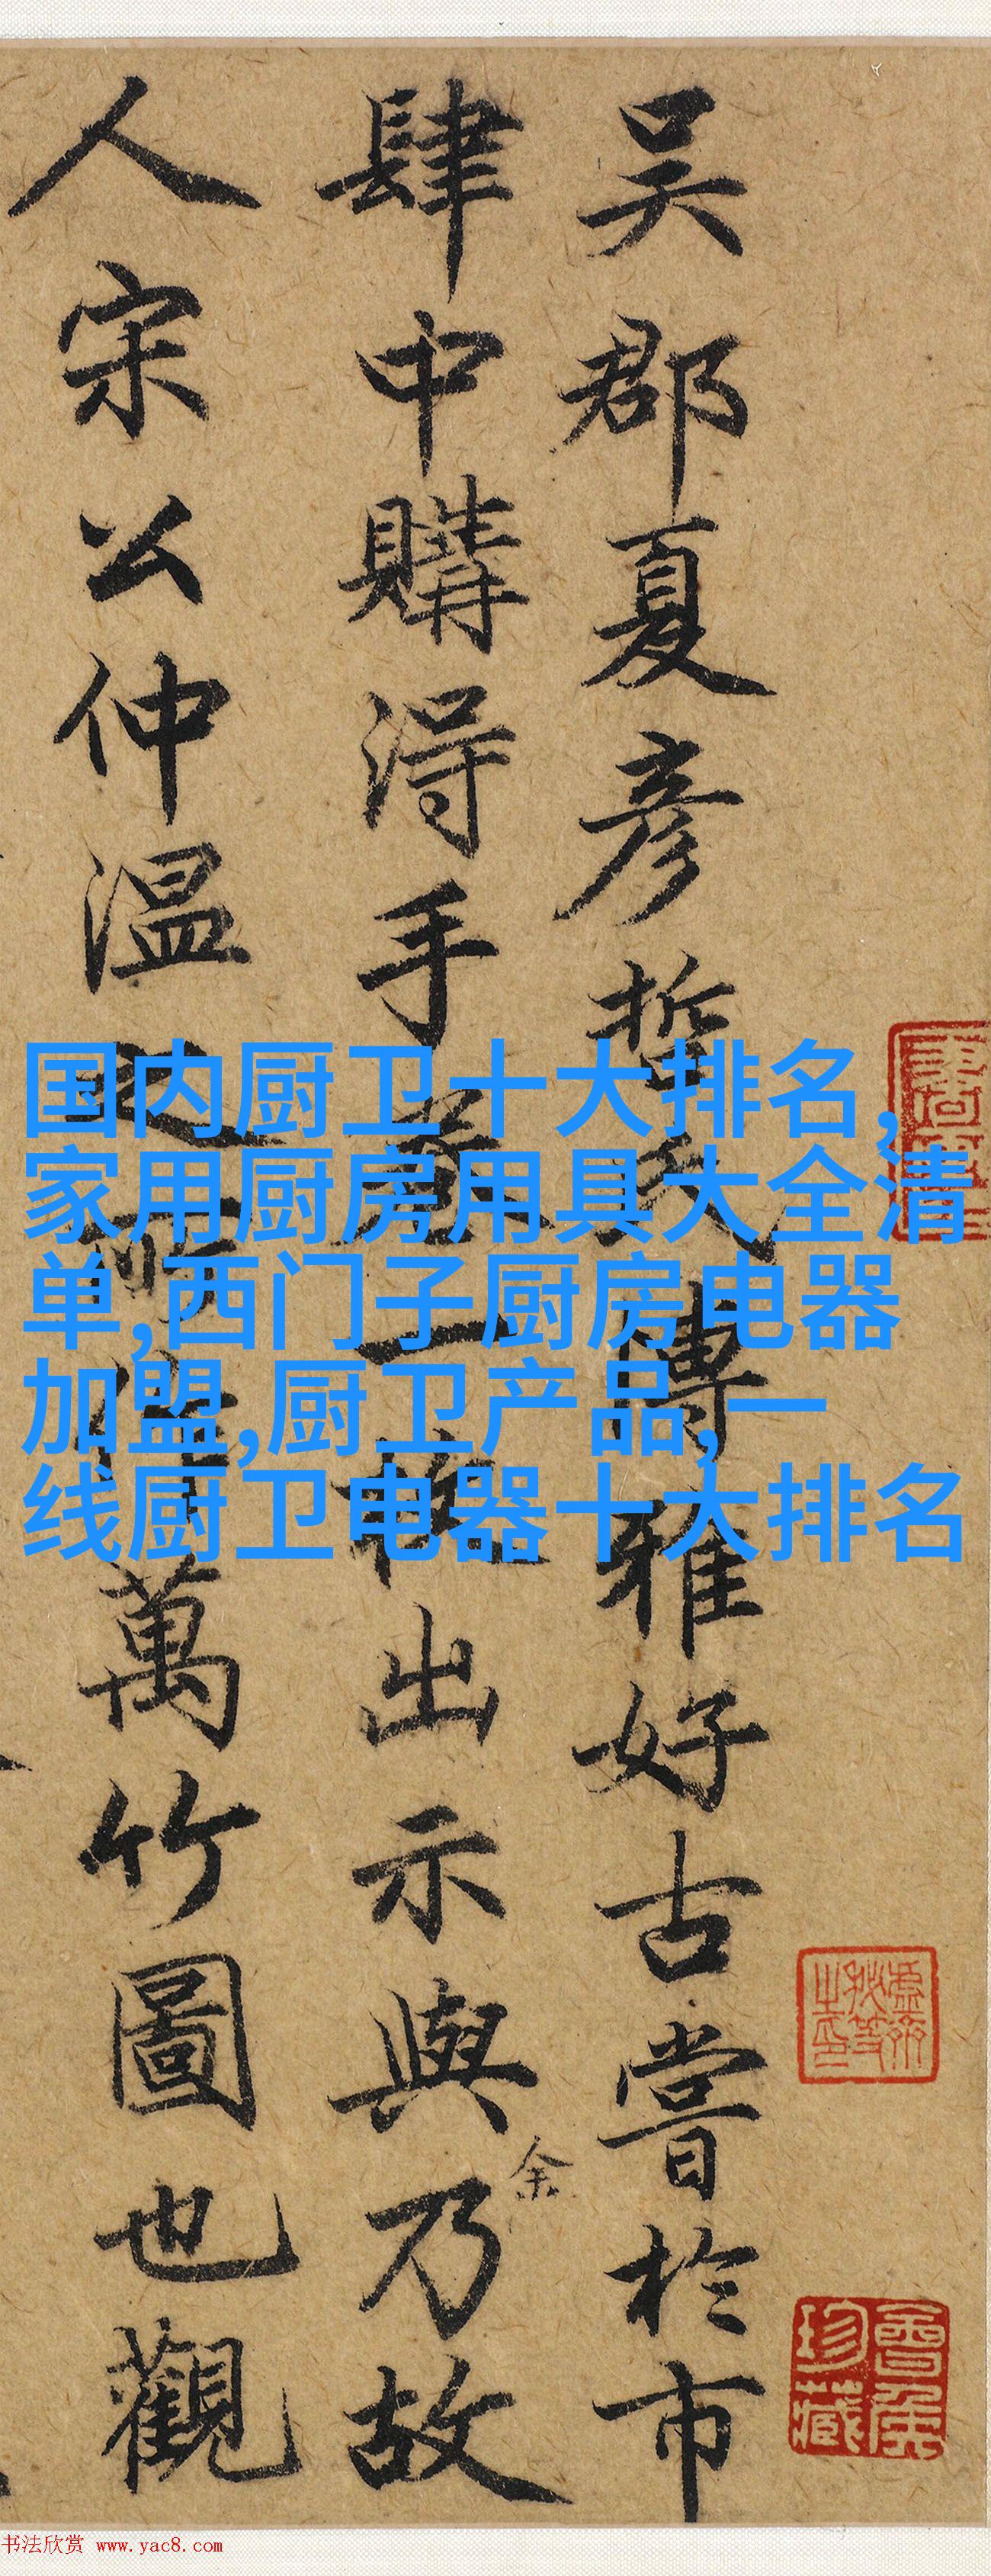 吴郡夏彦哲氏博雅好古嘗於市
肆中購得手卷一
出示與余乃故
人宋公仲溫之所作萬竹圖也觀
国内厨卫十大排名,
家用厨房用具大全清
单,西门子厨房电器
加盟,厨卫产品,一
线厨卫电器十大排名
珍藏
书法欣赏 www.yac8.com